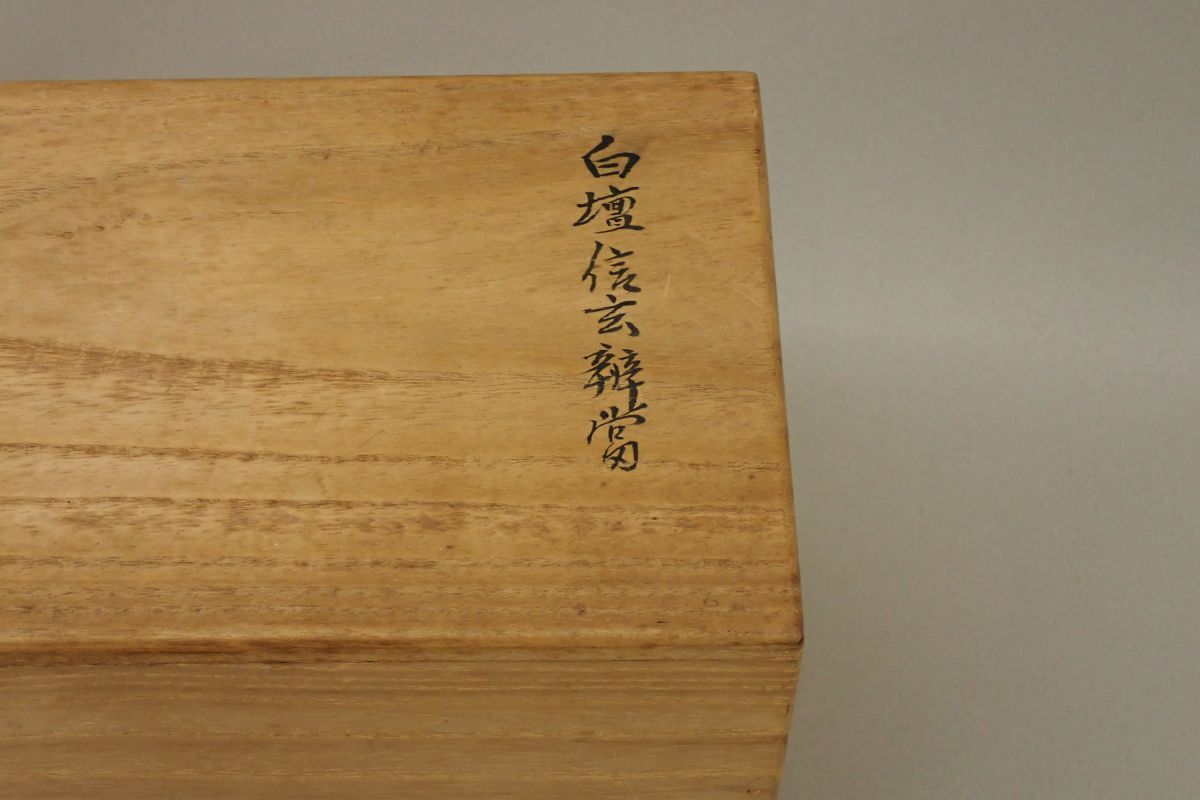 白壇信玄辨當